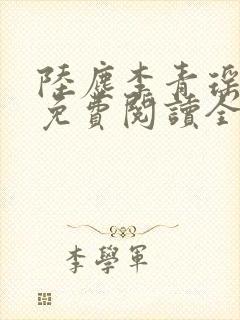 陸塵李青瑶
免費閱讀全
李學軍